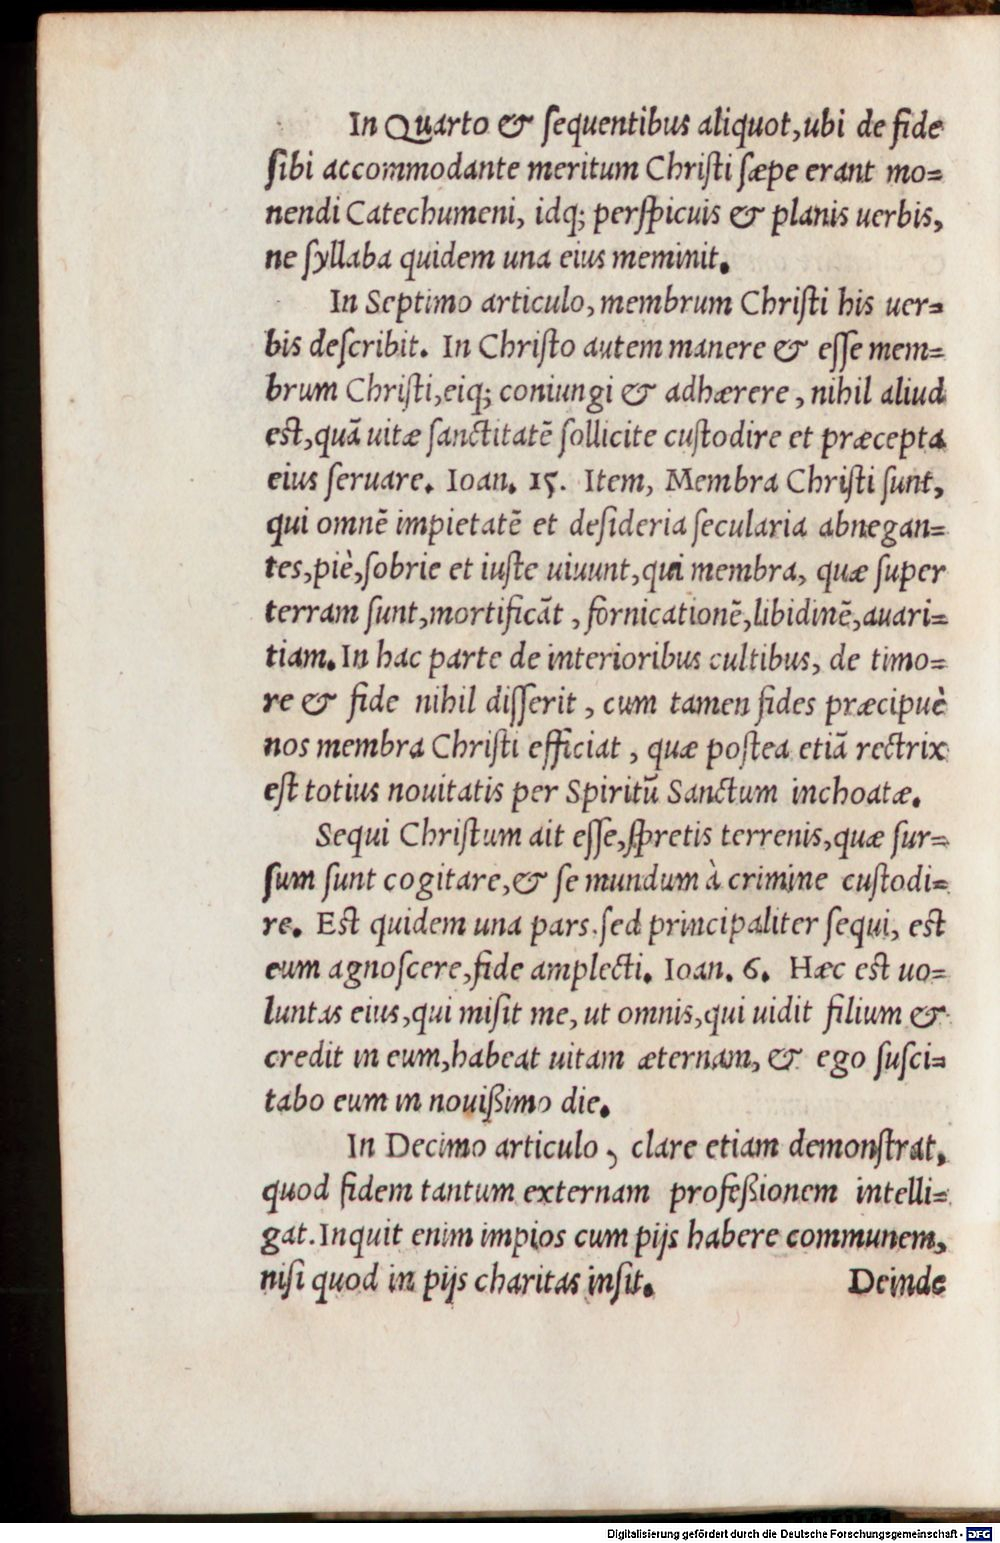 In Quarto & ſequentibus aliquot,ubi de fide
ſibi accommodante meritum Chriſti ſæpe erant mo=
nendi Catechumeni, idq; perſpicuis & planis uerbis,
ne ſyllaba quidem una eius meminit.
In Septimo articulo, membrum Chriſti his uer=
bis deſcribit. In Chriſto autem manere & eſſe mem=
brum Chriſti,eiq; coniungi & adhærere, nihil aliud
est,quā uitæ ſanctitatē ſollicite cuſtodire et præcepta
eius ſeruare. Ioan. 15. Item, Membra Chriſti ſunt,
qui omnē impietatē et deſideria ſecularia abnegan=
tes,piè,ſobrie et iuſte uiuunt,qui membra, quæ ſuper
terram ſunt,mortificāt, fornicationē,libidinē,auari=
tiam. In hac parte de interioribus cultibus, de timo=
re & fide nihil diſſerit, cum tamen fides præcipuè
nos membra Chriſti efficiat, quæ poſtea etiā rectrix
eſt totius nouitatis per Spiritū Sanctum inchoatæ.
Sequi Chriſtum ait eſſe,ſpretis terrenis,quæ ſur=
ſum ſunt cogitare,& ſe mundum à crimine cuſtodi=
re. Eſt quidem una pars.ſed principaliter ſequi, eſt
eum agnoſcere,fide amplecti. Ioan. 6. Hæc eſt uo=
luntas eius,qui miſit me, ut omnis,qui uidit filium &
credit in eum,habeat uitam æternam, & ego ſuſci=
tabo eum in nouißimo die.
In Decimo articulo, clare etiam demonſtrat,
quod fidem tantum externam profeßionem intelli=
gat. Inquit enim impios cum pijs habere communem,
niſi quod in pijs charitas inſit. Deinde
Digitalisierung gefördert durch die Deutsche Forschungsgemeinschaft - DFG